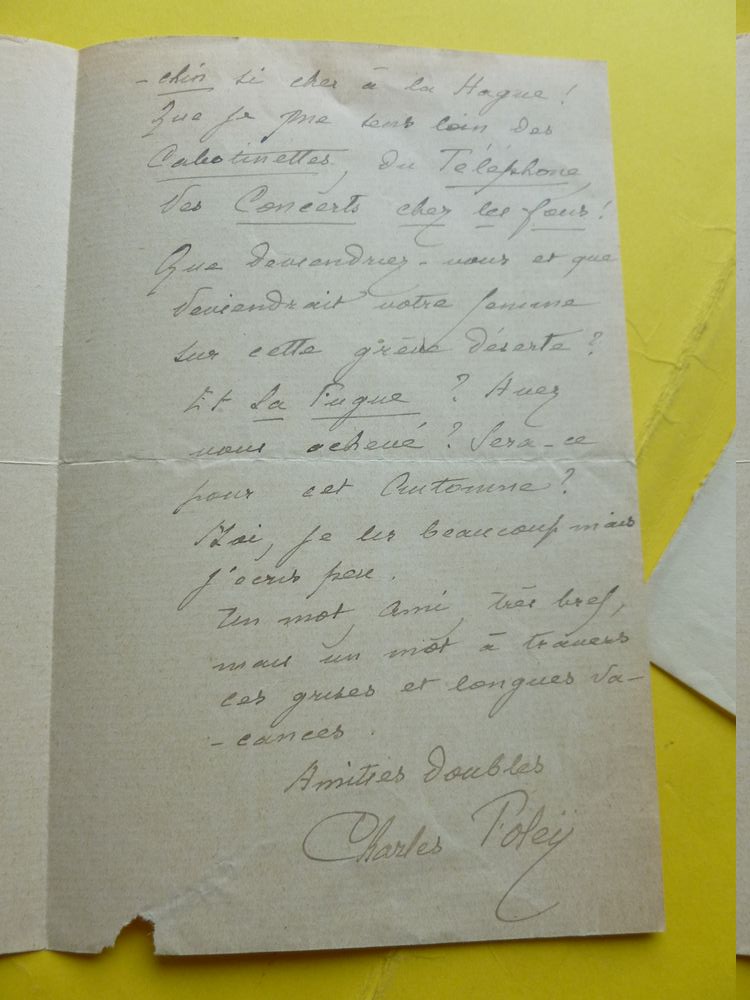 - chin si cher à la Hague !
Que je me sens loin des
Cabotinettes, du Téléphone,
des Concerts chez les fous !
Que deviendriez-vous et que
deviendrait votre femme
sur cette grève déserte ?
Et La Fugue ? Avez
vous achevé ? Sera-ce
pour cet Automne ?
Moi, je lis beaucoup mais
j'écris peu.
Un mot, ami, très bref,
mais un mot à travers
ces grises et longues va-
- cances.
Amitiés doubles
Charles Foleÿ